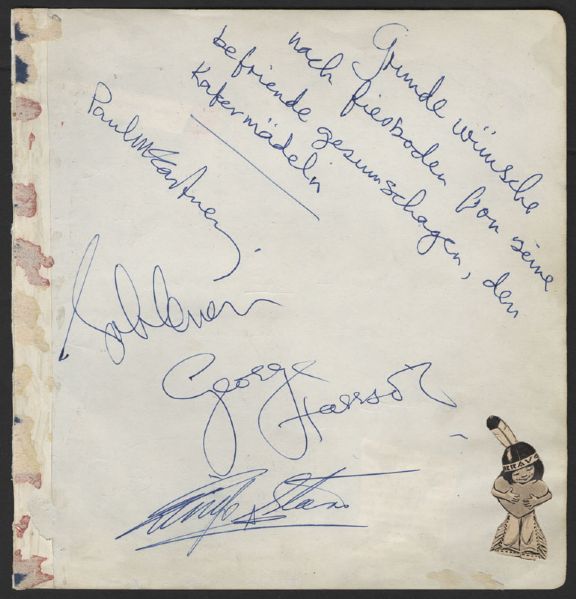 Grunde wünsche
nach fiesboden fon seine
befriende gesumschagen, den
Katermädeln
Paul McCartney
John Lennon
George Harrison
Ringo Starr
BRAVO